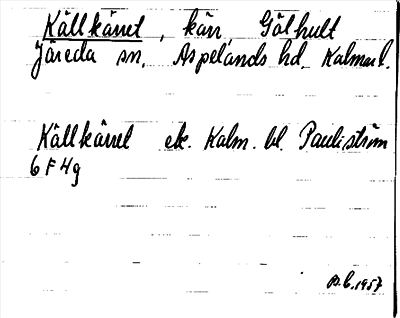 Källkärret, kärr, Gölhult
Järeda sn. Aspelands hd. Kalmar l.
Källkärret ek. Kalm. bl. Pauliström
6 F 4g
B.C. 1957